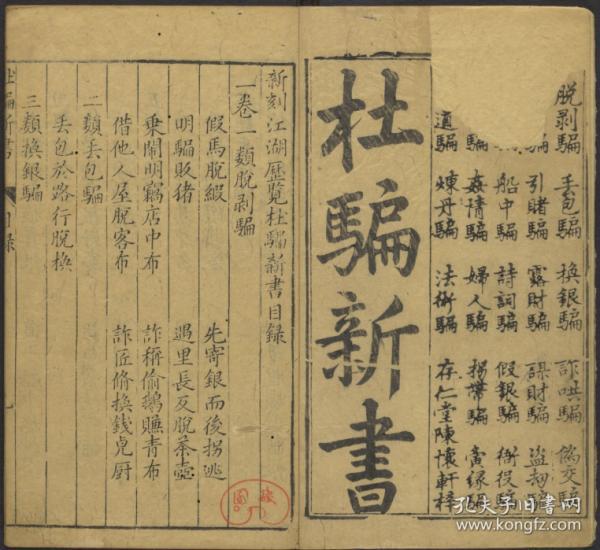 脫剥騙 丟包騙 換銀騙 詐哄騙 偽交騙
騙 引賭騙 露財騙 謀財騙 盜劫騙
船中騙 詩詞騙 假銀騙 衙役騙
騙 姦情騙 婦人騙 拐帶騙
道騙 煉丹騙 法術騙 存仁堂陳懷軒梓
杜騙新書
新刻江湖歷覽杜騙新書目錄
一卷一類脫剥騙
假馬脫緞 先寄銀而後拐逃
明騙販猪 遇里長反脫茶壺
乘鬧明竊店中布 詐稱偷鵝賺青布
借他人屋脫客布 詐匠修換錢卓厨
二類丢包騙
丢包於路行脫換
三類換銀騙
杜騙新書 目錄
孔夫子旧书网
www.kongfz.com